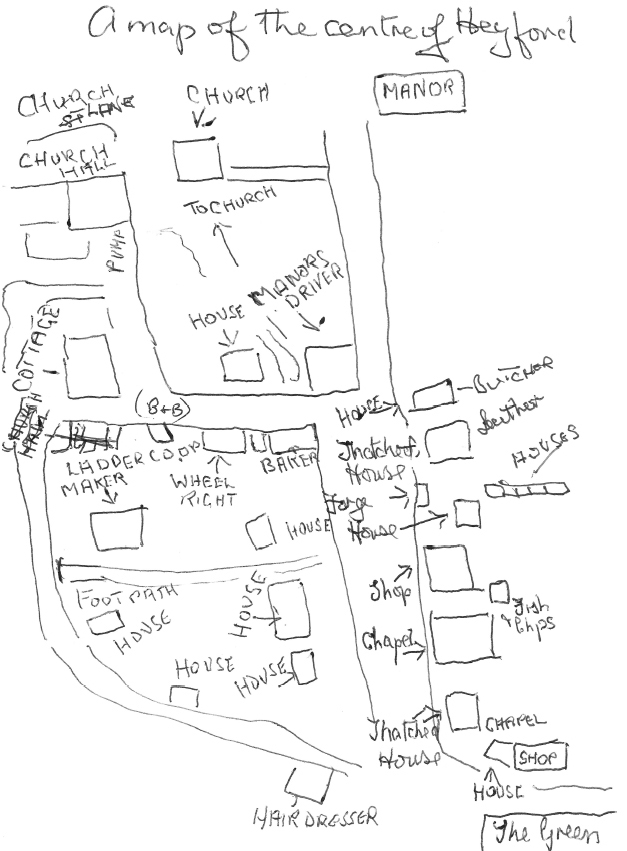 A map of the centre of Heyford
MANOR
CHURCH
CHURCH
LANE
CHURCH
HALL
TO CHURCH
PUMP
MANORS
DRIVER
HOUSE
COTTAGE
(B+B)
HOUSE
BUTCHER
Leather
Thatched
House
HOUSES
LADDER
MAKER
COOP
WHEEL
RIGHT
BAKER
Forge
House
HOUSE
FOOTPATH
HOUSE
HOUSE
Shop
Fish
Chips
Chapel
HOUSE
HOUSE
Thatched
House
CHAPEL
SHOP
HOUSE
HAIRDRESSER
The Green